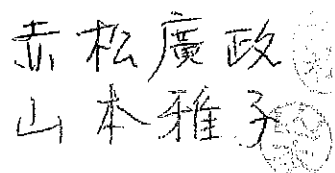 赤松廣政
山本雅子